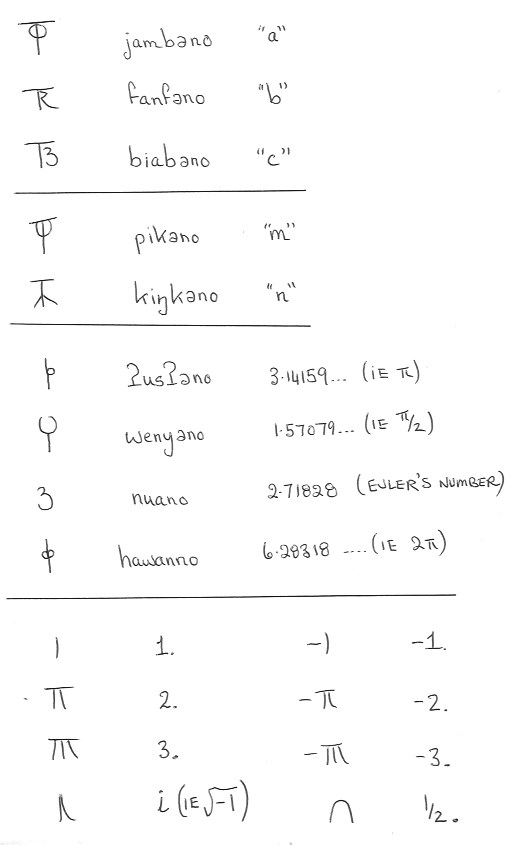 jambəno "a"
fanfəno "b"
biabəno "c"
pikəno "m"
kiŋkəno "n"
ʔusʔəno 3.14159... (IE π)
wenyəno 1.57079... (IE π/2)
3 nuəno 2.71828 (EULER'S NUMBER)
ɸ hawənno 6.28318 .... (IE 2π)
1 1. -1 -1.
2. -2.
3. -3.
i (IE √-1) ∩ 1/2.